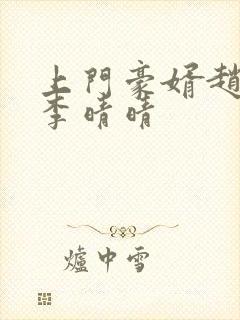 上門豪婿趙
李晴晴
爐中雪